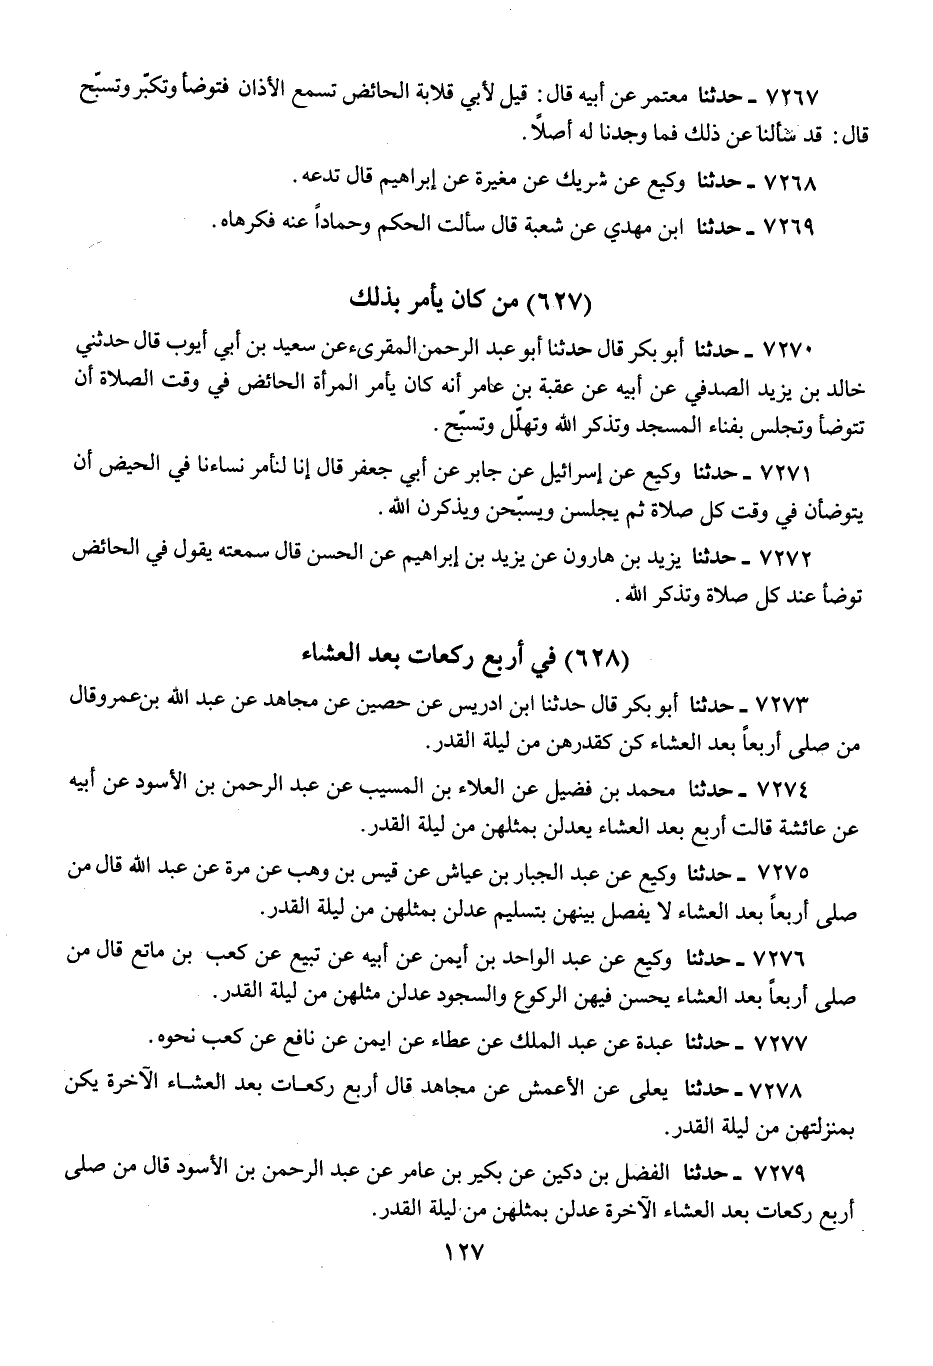 ٧٢٦٧ ـ حدثنا معتمر عن أبيه قال: قيل لأبي قلابة الحائض تسمع الأذان فتوضأ وتكبّر وتسبّح
قال: قد سألنا عن ذلك فما وجدنا له أصلاً.
٧٢٦٨ ـ حدثنا وكيع عن شريك عن مغيرة عن إبراهيم قال تدعه.
٧٢٦٩ ـ حدثنا ابن مهدي عن شعبة قال سألت الحكم وحماداً عنه فكرهاه.
(٦٢٧) من كان يأمر بذلك
٧٢٧٠ ـ حدثنا أبو بكر قال حدثنا أبو عبد الرحمن المقرىء عن سعيد بن أبي أيوب قال حدثني
خالد بن يزيد الصدفي عن أبيه عن عقبة بن عامر أنه كان يأمر المرأة الحائض في وقت الصلاة أن
تتوضأ وتجلس بفناء المسجد وتذكر الله وتهلّل وتسبّح.
٧٢٧١ ـ حدثنا وكيع عن إسرائيل عن جابر عن أبي جعفر قال إنا لنأمر نساءنا في الحيض أن
يتوضأن في وقت كل صلاة ثم يجلسن ويسبّحن ويذكرن الله.
٧٢٧٢ ـ حدثنا يزيد بن هارون عن يزيد بن إبراهيم عن الحسن قال سمعته يقول في الحائض
توضأ عند كل صلاة وتذكر الله.
(٦٢٨) في أربع ركعات بعد العشاء
٧٢٧٣ ـ حدثنا أبو بكر قال حدثنا ابن ادريس عن حصين عن مجاهد عن عبد الله بن عمرو قال
من صلى أربعاً بعد العشاء كن كقدرهن من ليلة القدر.
٧٢٧٤ ـ حدثنا محمد بن فضيل عن العلاء بن المسيب عن عبد الرحمن بن الأسود عن أبيه
عن عائشة قالت أربع بعد العشاء يعدلن بمثلهن من ليلة القدر.
٧٢٧٥ ـ حدثنا وكيع عن عبد الجبار بن عياش عن قيس بن وهب عن مرة عن عبد الله قال من
صلى أربعاً بعد العشاء لا يفصل بينهن بتسليم عدلن بمثلهن من ليلة القدر.
٧٢٧٦ ـ حدثنا وكيع عن عبد الواحد بن أيمن عن أبيه عن تبيع عن كعب بن ماتع قال من
صلى أربعاً بعد العشاء يحسن فيهن الركوع والسجود عدلن مثلهن من ليلة القدر.
٧٢٧٧ ـ حدثنا عبدة عن عبد الملك عن عطاء عن ايمن عن نافع عن كعب نحوه.
٧٢٧٨ ـ حدثنا يعلى عن الأعمش عن مجاهد قال أربع ركعات بعد العشاء الآخرة يكن
بمنزلتهن من ليلة القدر.
٧٢٧٩ ـ حدثنا الفضل بن دكين عن بكير بن عامر عن عبد الرحمن بن الأسود قال من صلى
أربع ركعات بعد العشاء الآخرة عدلن بمثلهن من ليلة القدر.
١٢٧